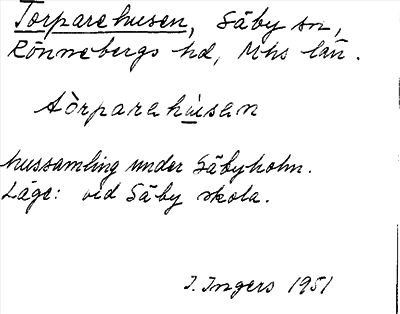 Torparehusen, Säby sn,
Rönnebergs hd, Mhs län.
tòrparehùsen
hussamling under Säbyholm.
Läge: vid Säby skola.
I. Ingers 1951